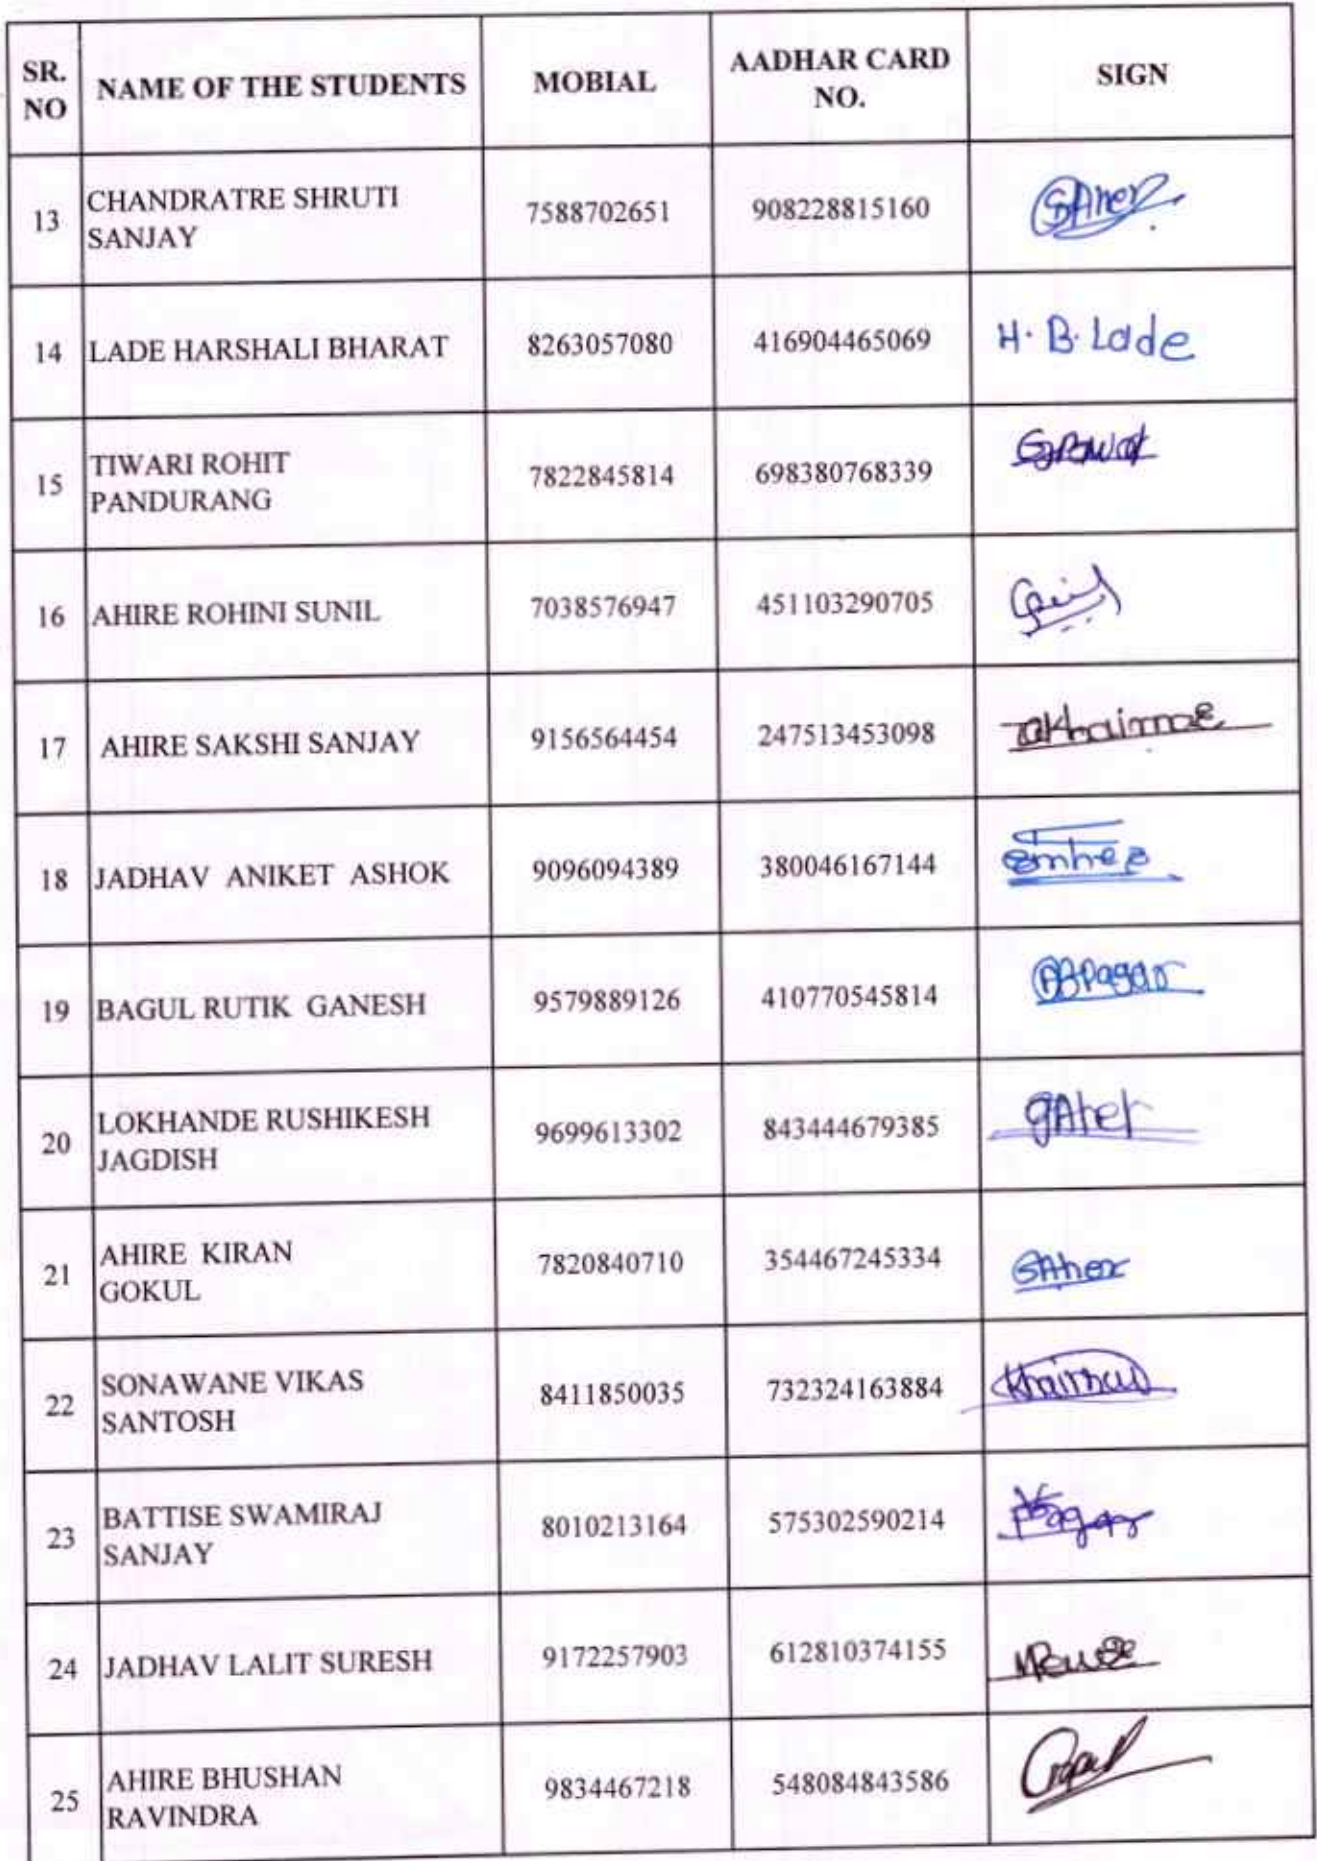 SR. NO NAME OF THE STUDENTS MOBIAL AADHAR CARD NO. SIGN
13 CHANDRATRE SHRUTI SANJAY 7588702651 908228815160
14 LADE HARSHALI BHARAT 8263057080 416904465069 H. B. Lade
15 TIWARI ROHIT PANDURANG 7822845814 698380768339
16 AHIRE ROHINI SUNIL 7038576947 451103290705
17 AHIRE SAKSHI SANJAY 9156564454 247513453098
18 JADHAV ANIKET ASHOK 9096094389 380046167144
19 BAGUL RUTIK GANESH 9579889126 410770545814
20 LOKHANDE RUSHIKESH JAGDISH 9699613302 843444679385
21 AHIRE KIRAN GOKUL 7820840710 354467245334
22 SONAWANE VIKAS SANTOSH 8411850035 732324163884
23 BATTISE SWAMIRAJ SANJAY 8010213164 575302590214
24 JADHAV LALIT SURESH 9172257903 612810374155
25 AHIRE BHUSHAN RAVINDRA 9834467218 548084843586